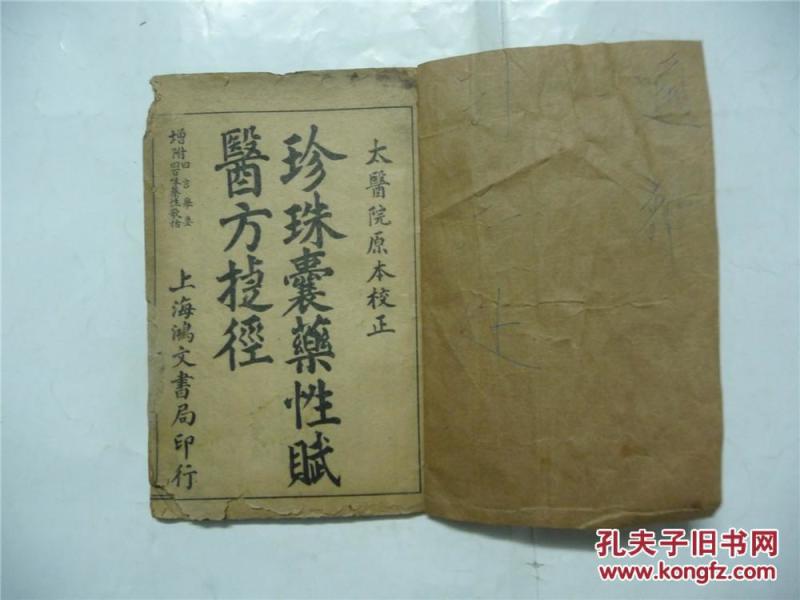 太醫院原本校正
珍珠囊藥性賦
醫方捷徑
增附四言舉要
四百味藥性歌括
上海鴻文書局印行
孔夫子旧书网
www.kongfz.com